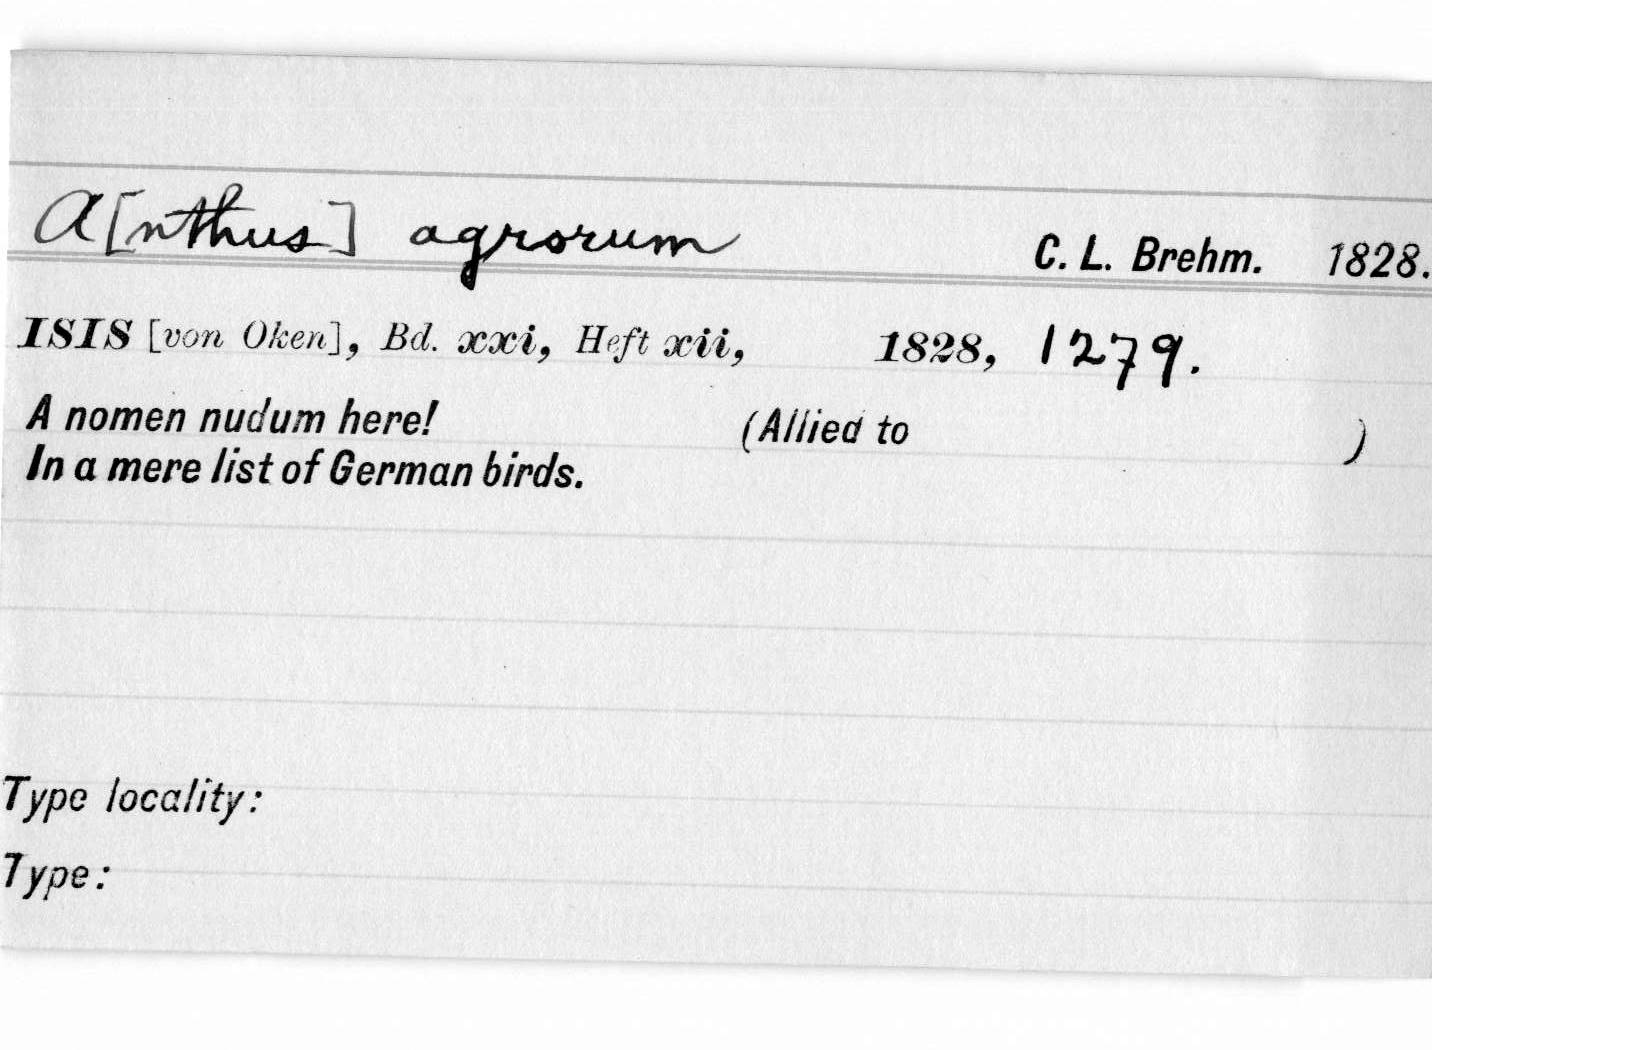 A[nthus] agrorum C. L. Brehm. 1828.
ISIS [von Oken], Bd. xxi, Heft xii, 1828, 1279.
A nomen nudum here! (Allied to )
In a mere list of German birds.
Type locality:
Type: